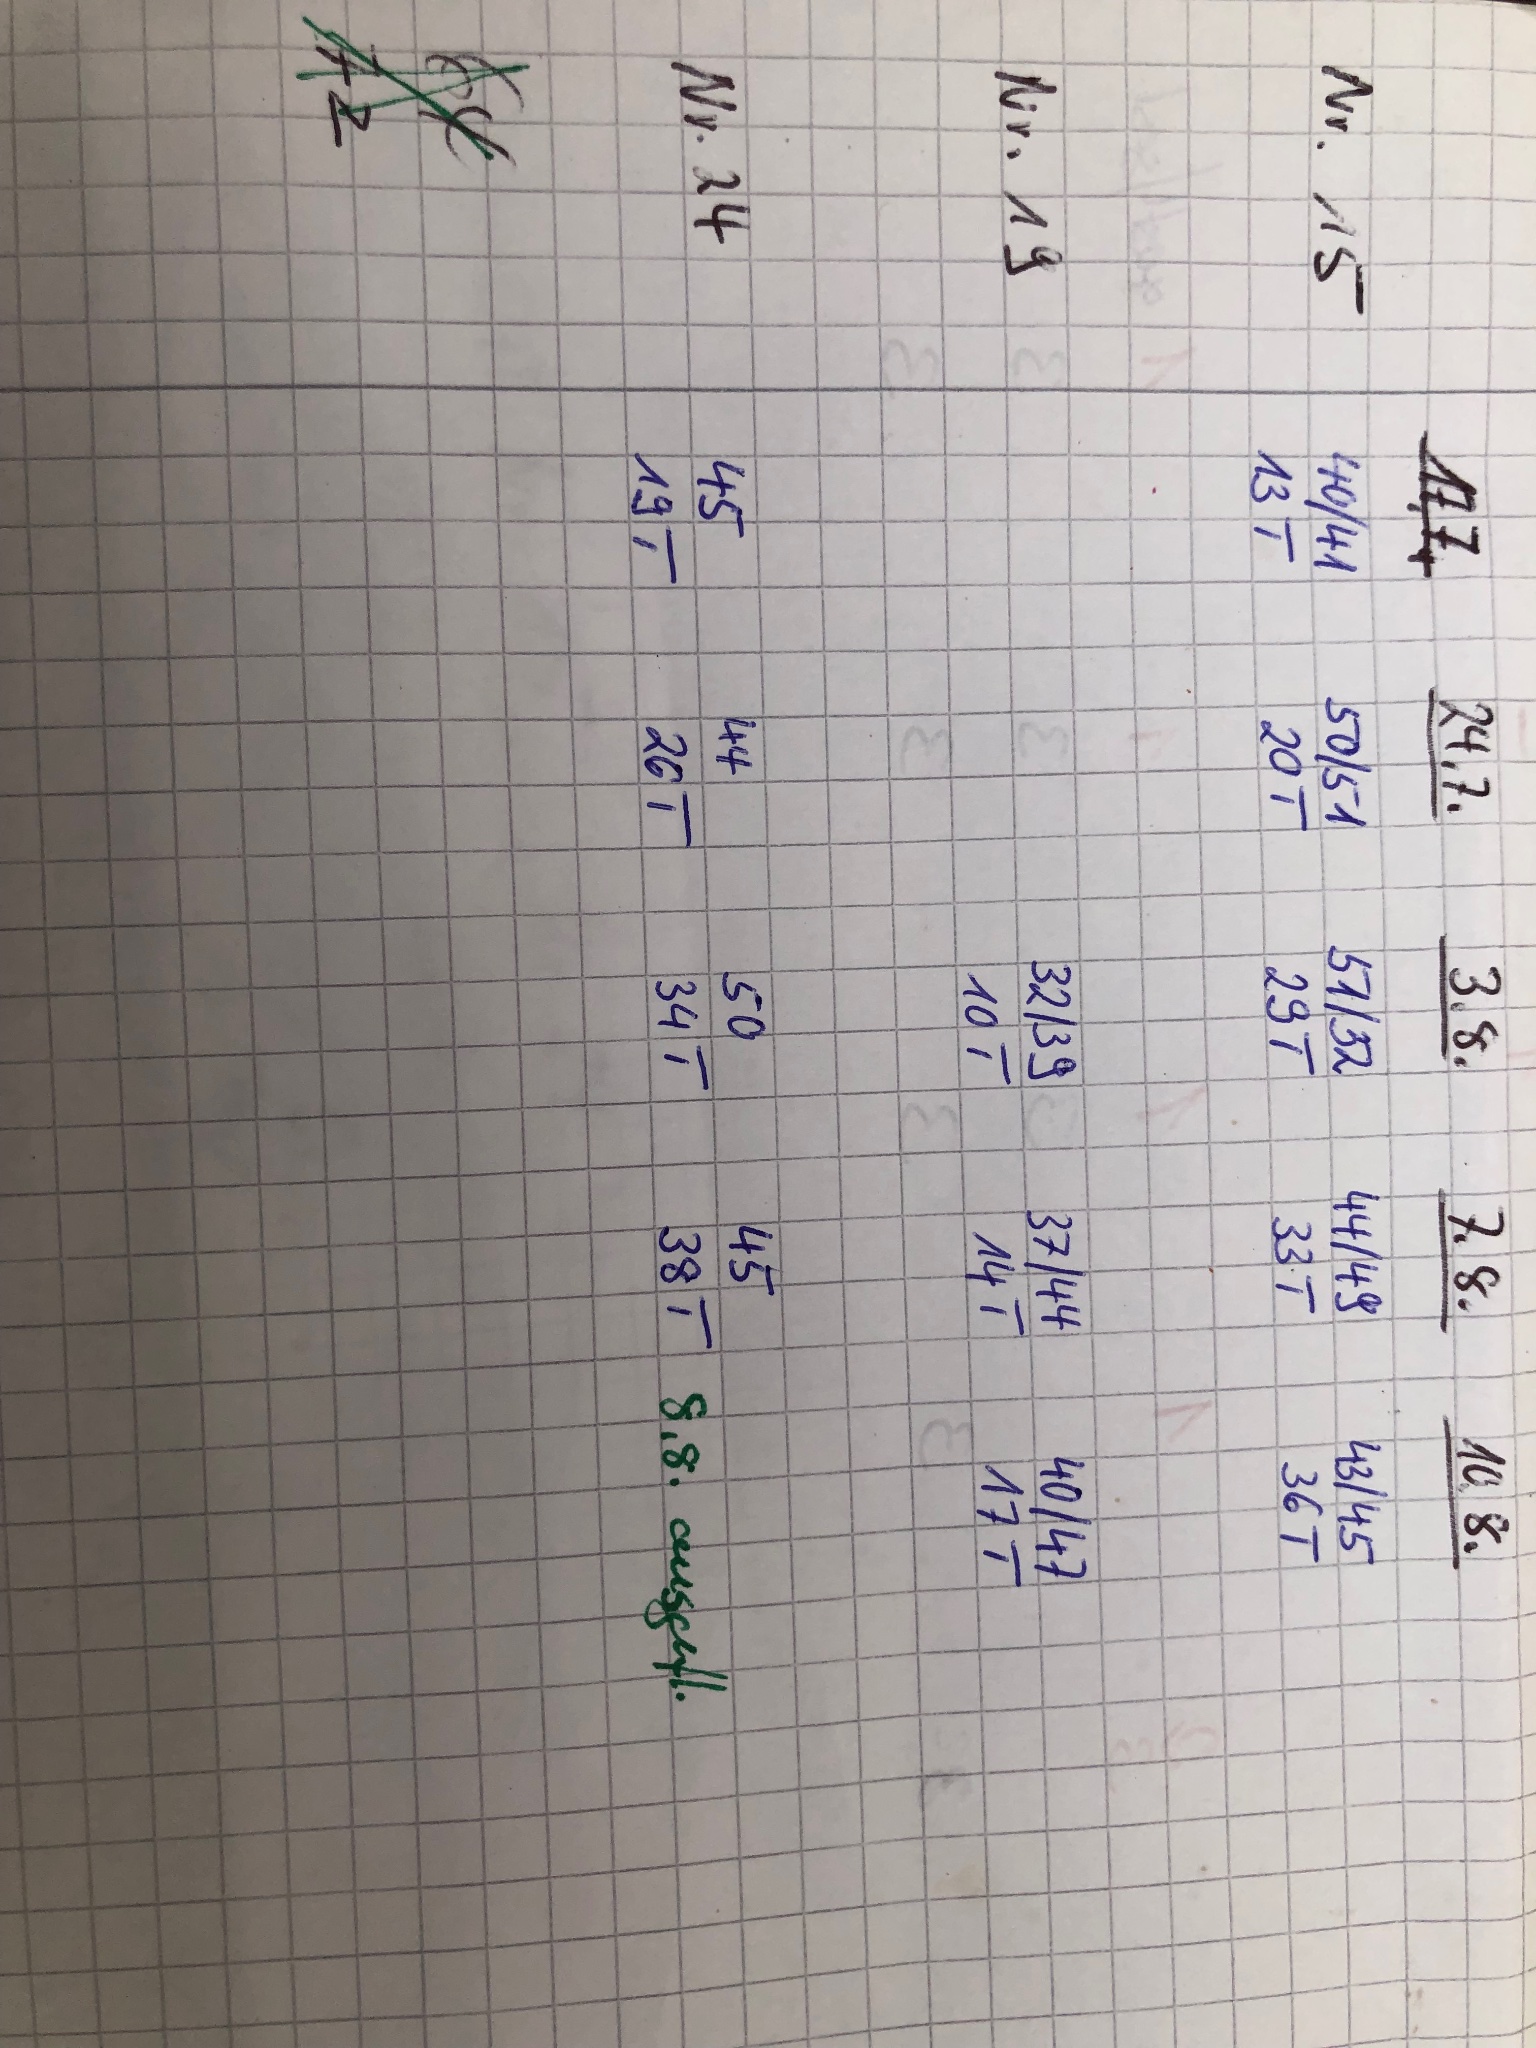 17.7. 24.7. 3.8. 7.8. 10.8.
Nr. 15 40/41 50/51 51/52 44/49 43/45
13 T 20 T 29 T 33 T 36 T
Nr. 19 32/39 37/44 40/47
10 T 14 T 17 T
Nr. 24 45 44 50 45
19 T 26 T 34 T 38 T 8.8. ausgefl.